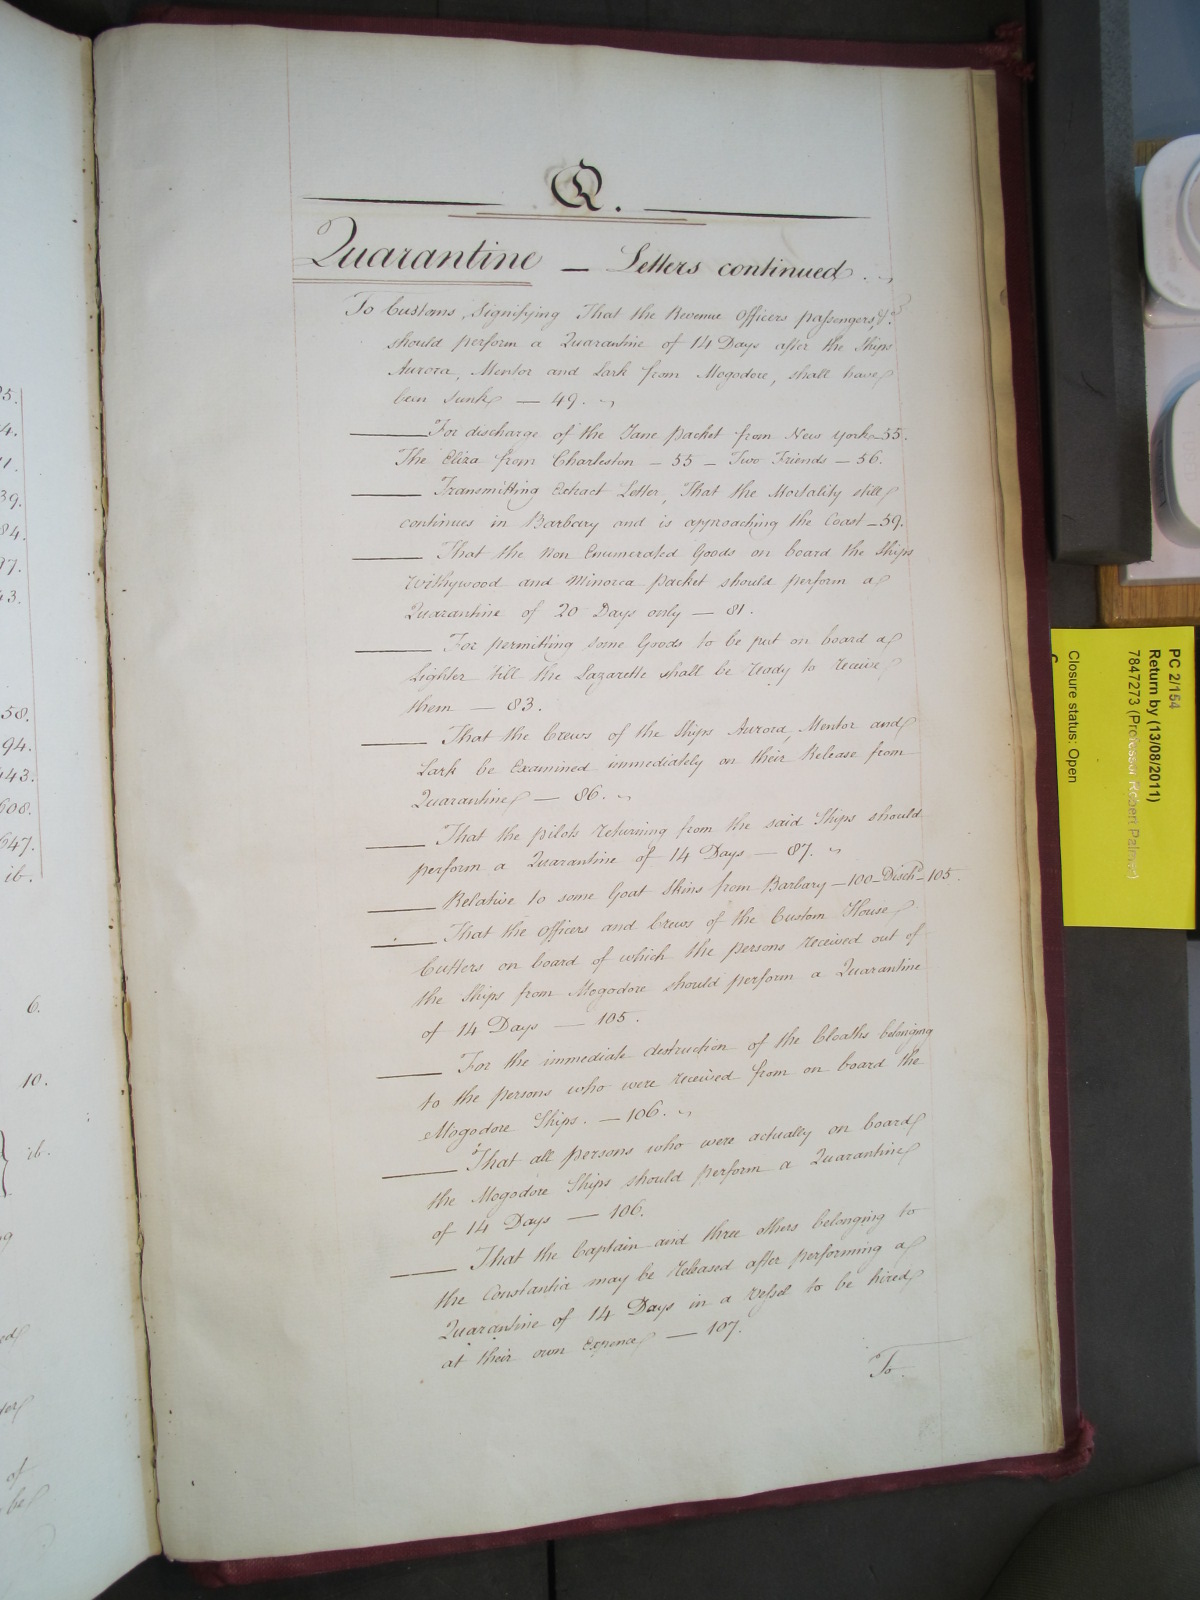 25.
4.
11.
39.
84.
97.
43.
58.
94.
443.
608.
647.
ib.
6.
10.
ib.
of
be
Q.
Quarantine — Letters continued.
To Customs, Signifying That the Revenue Officers passengers, &c.
should perform a Quarantine of 14 Days after the Ships
Aurora, Mentor and Lark from Mogodore, shall have
been Sunk — 49.
For discharge of the Jane Packet from New York — 55.
The Eliza from Charleston — 55 — Two Friends — 56.
Transmitting Extract Letter, That the Mortality still
continues in Barbary and is approaching the Coast — 59.
That the Non Enumerated Goods on board the Ships
Withywood and Minorca Packet should perform a
Quarantine of 20 Days only — 81.
For permitting some Goods to be put on board a
Lighter till the Lazarette shall be ready to receive
them — 83.
That the Crews of the Ships Aurora, Mentor and
Lark be Examined immediately on their Release from
Quarantine — 86.
That the pilots returning from the said Ships should
perform a Quarantine of 14 Days — 87.
Relative to some Goat Skins from Barbary — 100 — Dischd. — 105.
That the Officers and Crews of the Custom House
Cutters on board of which the persons received out of
the Ships from Mogodore should perform a Quarantine
of 14 Days — 105.
For the immediate destruction of the Cloaths belonging
to the persons who were received from on board the
Mogodore Ships. — 106.
That all persons who were actually on board
the Mogodore Ships should perform a Quarantine
of 14 Days — 106.
That the Captain and three others belonging to
the Constantia may be released after performing a
Quarantine of 14 Days in a vessel to be hired
at their own Expence — 107.
To
PC 2/154
Return by (13/08/2011)
7847273 (Professor Robert Palmer)
Closure status: Open